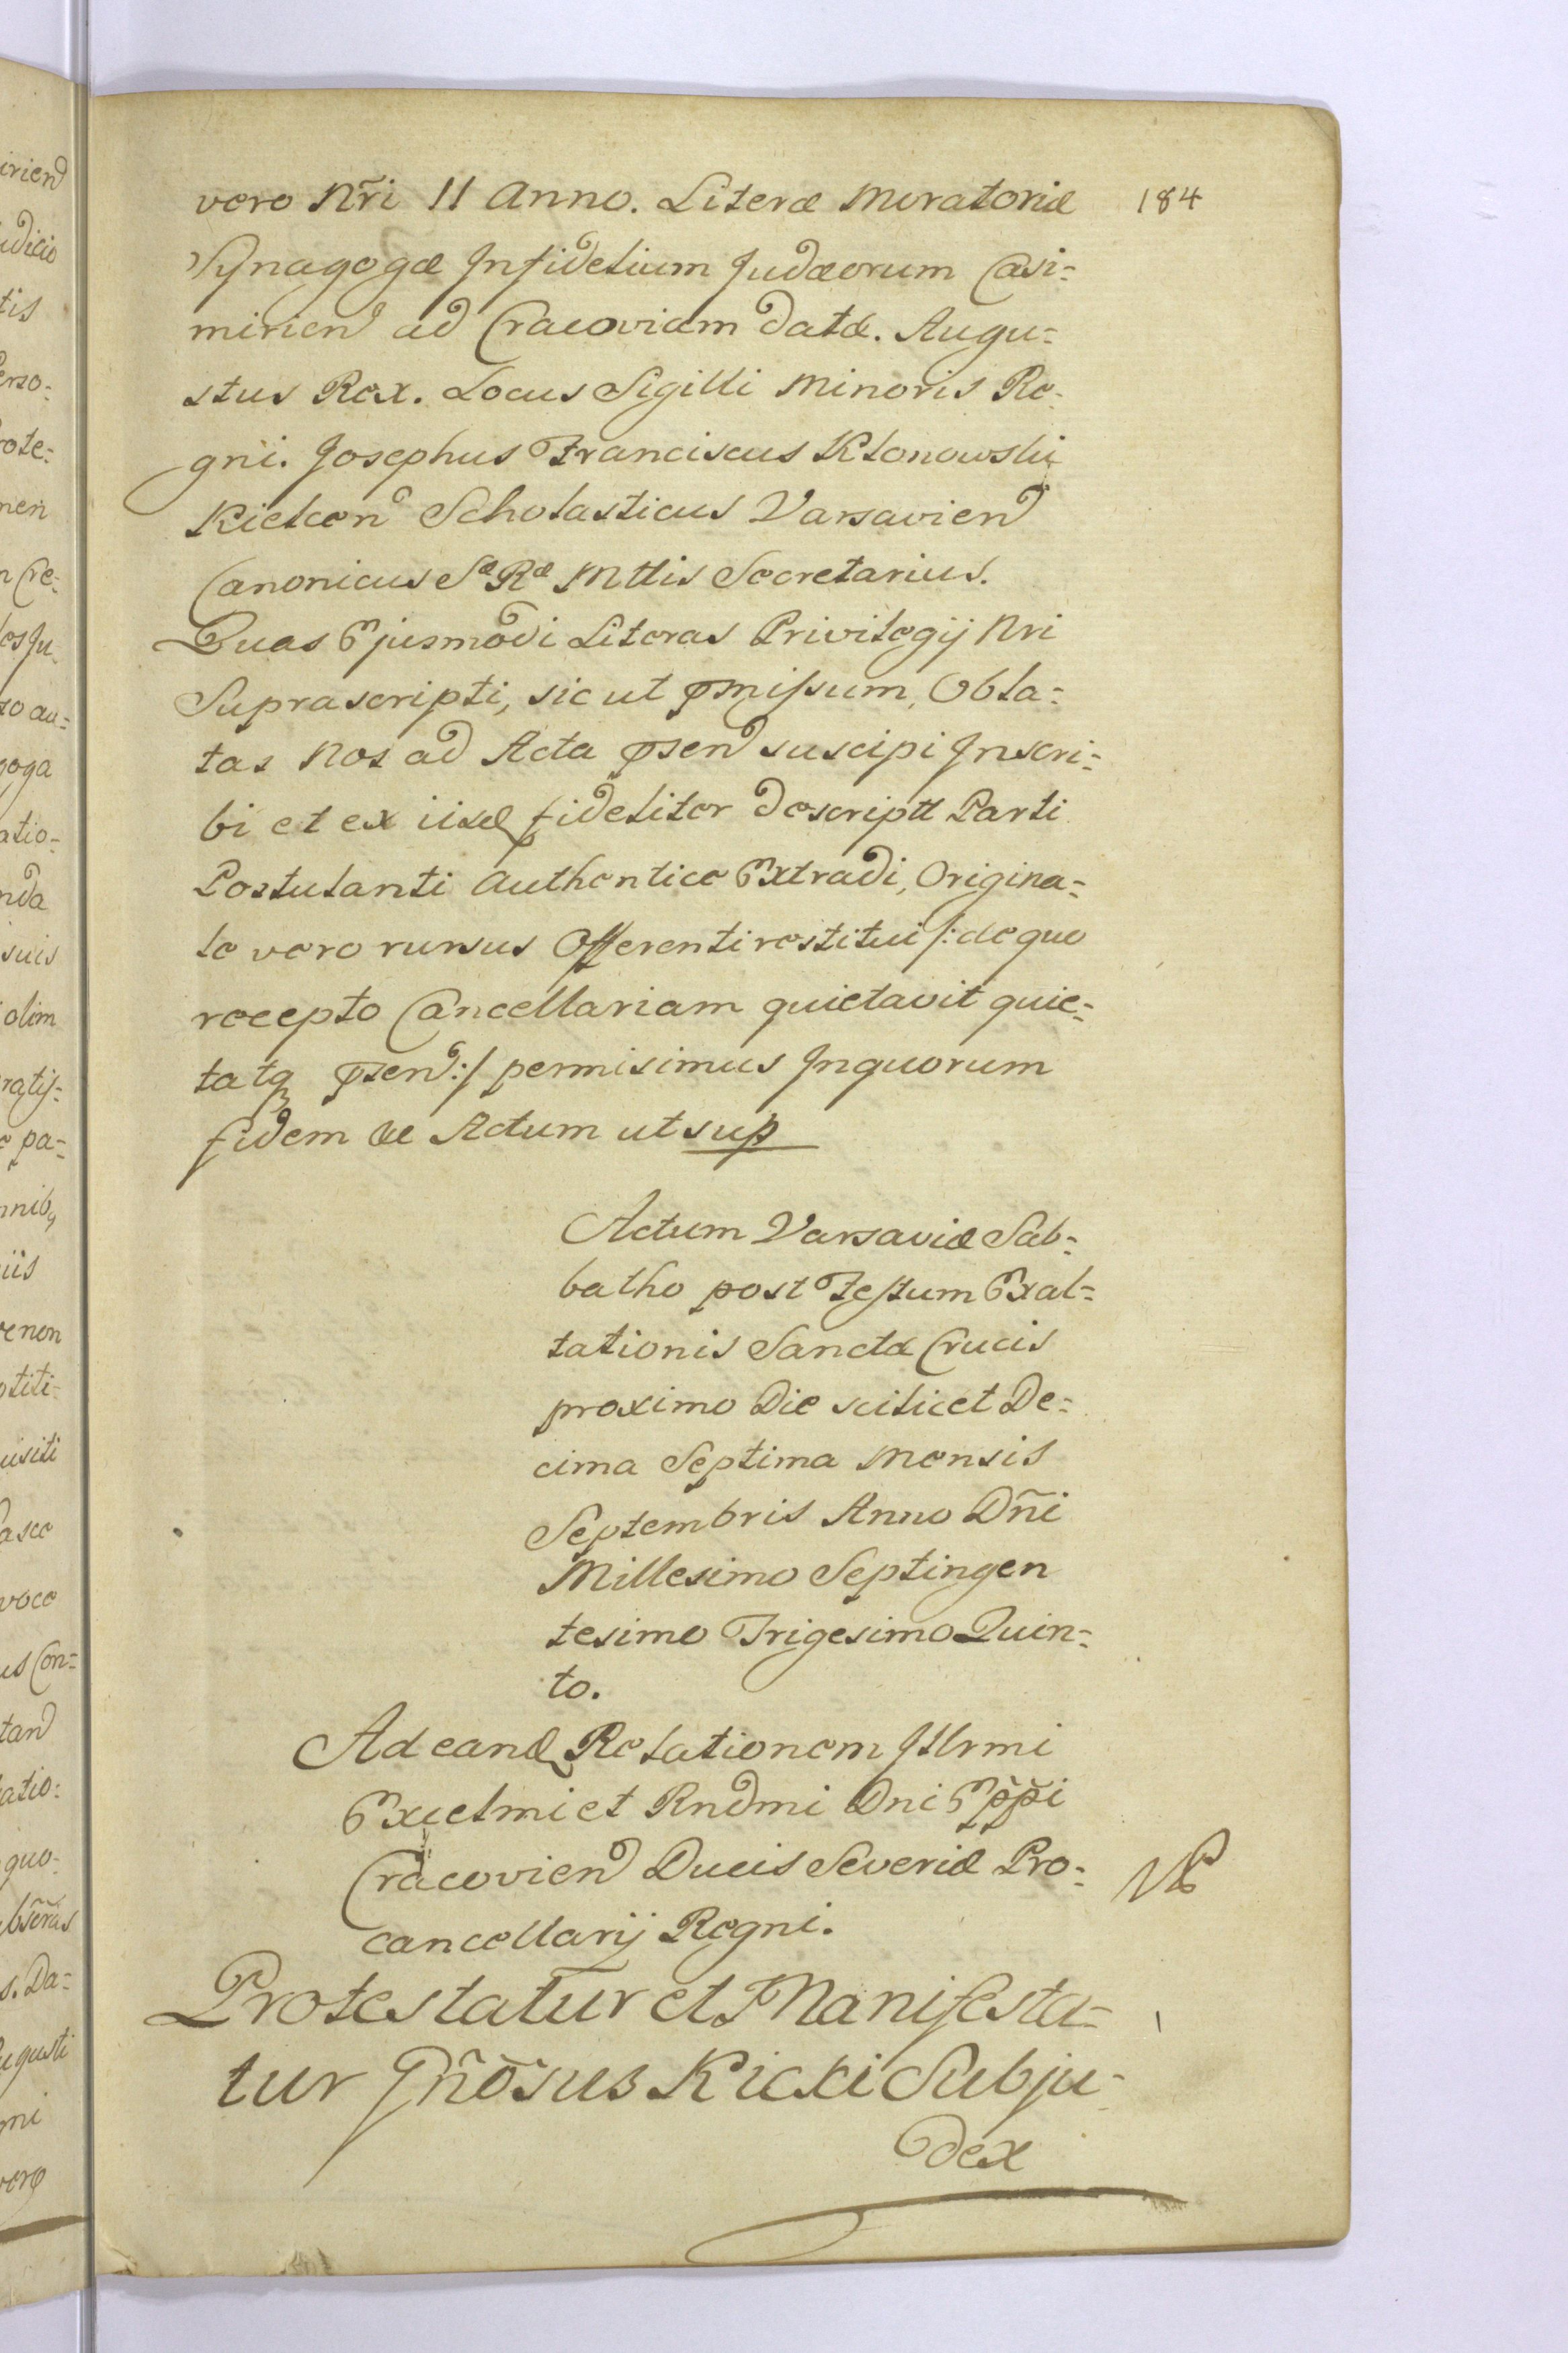 vero Nr̃i II Anno. Literæ Moratoriæ 184
Synagogæ Infidelium Judæorum Casi=
mirien ad Cracoviam Datæ. Augu=
stus Rex. Locus Sigilli Minoris Re=
gni. Josephus Franciscus Klonowski
Kielcen Scholasticus Varsavien
Canonicus Sæ Ræ Mttis Secretarius.
Quas Ejusmodi Literas Privilegij Nri
Suprascripti, sic ut pmissum, Obla=
tas Nos ad Acta psen suscipi Inscri=
bi et ex iisd fideliter descriptt Parti
Postulanti Authentice Extradi, Origina=
le vero rursus Offerenti restitui /: de quo
recepto Cancellariam quietavit quie=
tatq psen :/ permisimus In quorum
fidem &c Actum ut sup
Actum Varsaviæ Sab=
batho post Festum Exal=
tationis Sanctæ Crucis
proximo Die scilicet De=
cima Septima Mensis
Septembris Anno Dñi
Millesimo Septingen
tesimo Trigesimo Quin=
to.
Ad eand Relationem Illrmi
Excelmi et Rndmi Dni Ep̃p̃i
Cracovien Ducis Severiæ Pro=
cancellarij Regni.
Protestatur et Manifesta=
tur Gñosus Kicki Subju=
dex